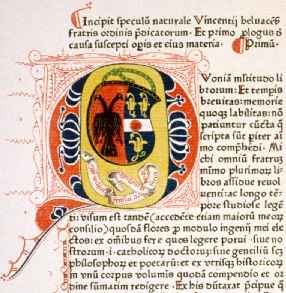 Incipit speculũ naturale Vincentij beluaceñ
fratris ordinis p̃dicatorum. Et primo plogus
causa suscepti opis et eius materia. Primũ.
QVoniã multitudo li
brorum: Et tempis
breuitas: memorie
quoqꝫ labilitas: nõ
patiuntur cũcta q̃
scripta sũt piter ai
mo cõphẽdi: Mi
chi omniũ fratrũ
mimo plurimorũ li
bros assidue reuol
uenti: ac longo tẽ
pore studiose legẽ
ti: visum est tandẽ (accedẽte etiam maiorũ meoꝝ
consilio) quosdã flores p modulo ingenij mei ele
ctos: ex oĩbus fere quos legere potui: siue no
strorum .i. catholicoꝝ doctoꝝ: siue gentiliũ scꝫ
philosophoꝝ et poetarũ: et ex vtrisqꝫ historicoꝝ:
in vnũ corpus volumis quodã compendio et or
dine sũmatim redigere. Ex his dũtaxat p̃cipue q